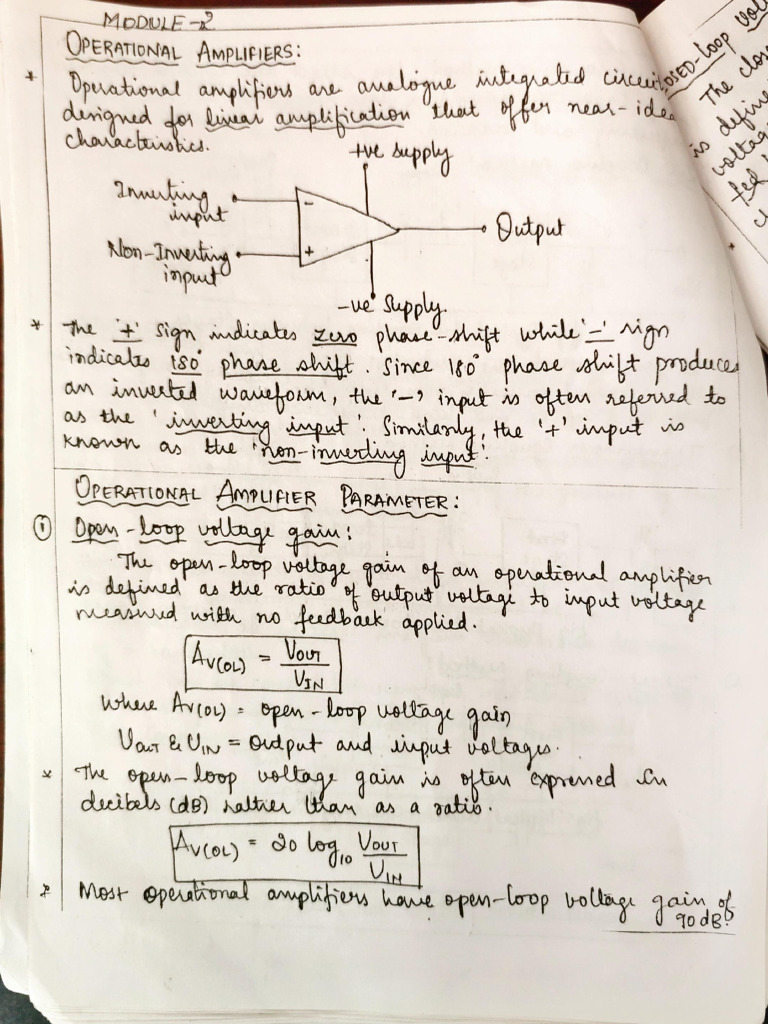 MODULE-2
OPERATIONAL AMPLIFIERS:
* Operational amplifiers are analogue integrated circuit
designed for linear amplification that offer near-idea
characteristics.
+ve supply
Inverting
input
-
Output
Non-Inverting
input
+
-ve Supply
* The '+' sign indicates zero phase-shift while '-' sign
indicates 180° phase shift. Since 180° phase shift produces
an inverted waveform, the '-' input is often referred to
as the 'inverting input'. Similarly, the '+' input is
known as the 'non-inverting input'.
OPERATIONAL AMPLIFIER PARAMETER:
(i) Open-loop voltage gain:
The open-loop voltage gain of an operational amplifier
is defined as the ratio of output voltage to input voltage
measured with no feedback applied.
AV(OL) = VOUT / VIN
where AV(OL) = open-loop voltage gain
VOUT & VIN = Output and input voltages.
* The open-loop voltage gain is often expressed in
decibels (dB) rather than as a ratio.
AV(OL) = 20 log10 VOUT / VIN
* Most operational amplifiers have open-loop voltage gain of
90dB.
OSED-loop Vol
The clos
is define
voltag
fed